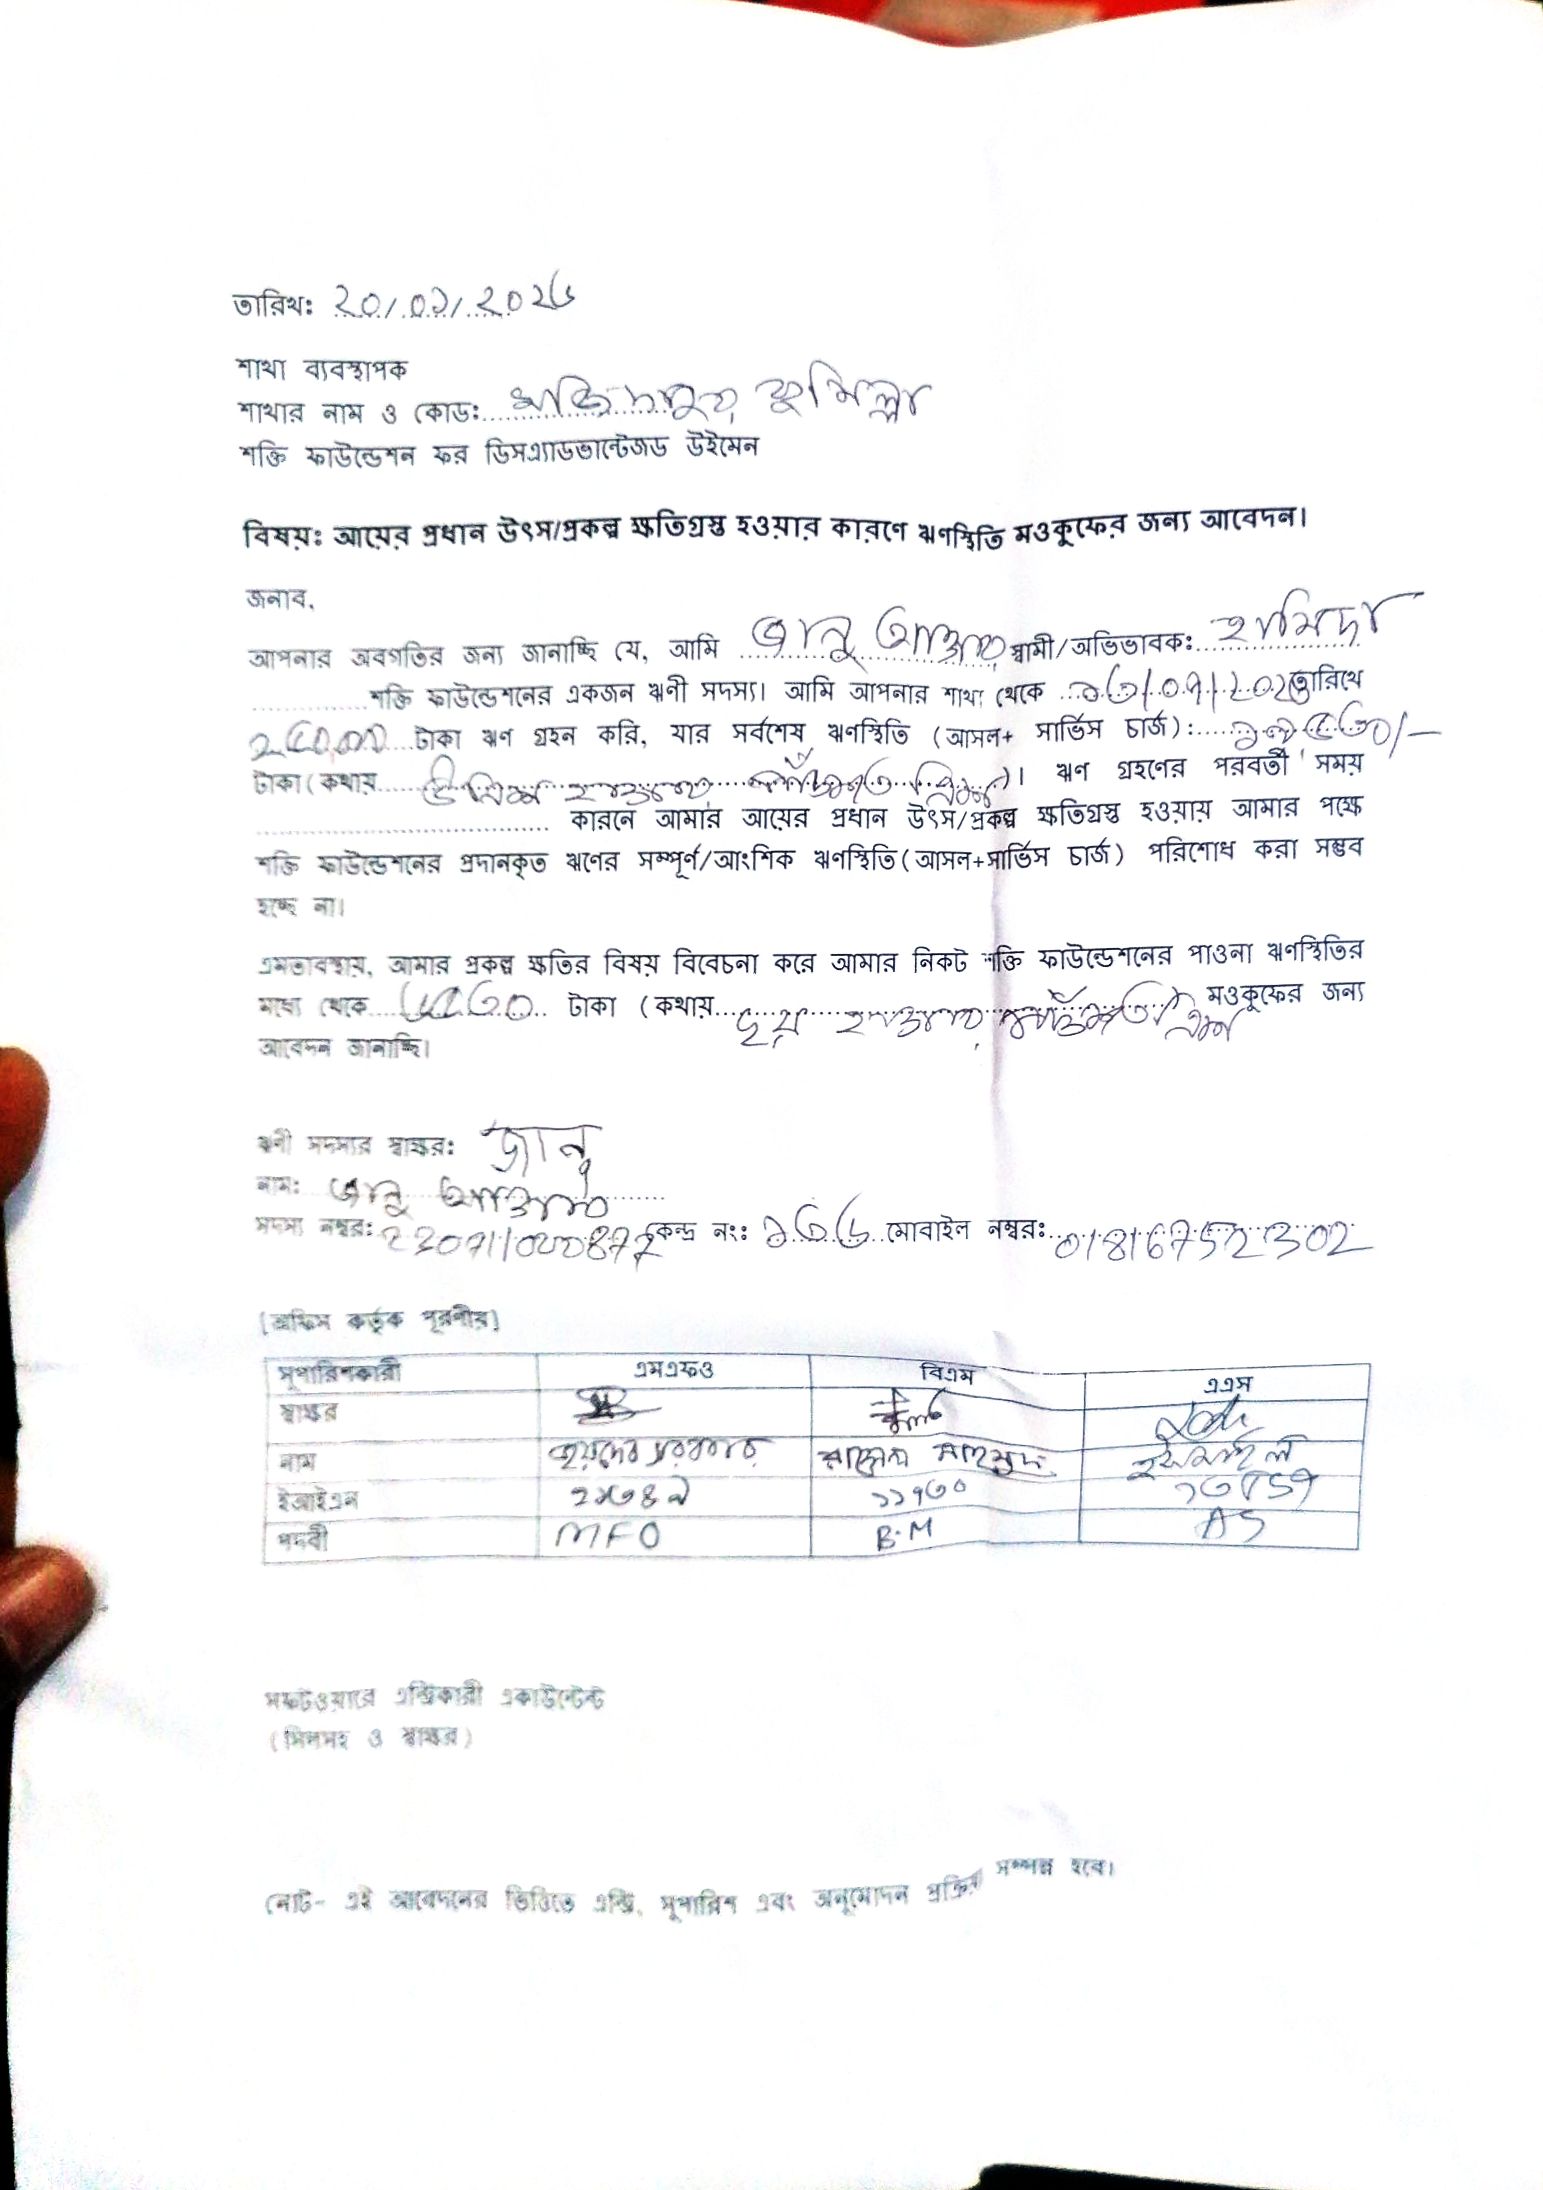 তারিখঃ ২০/০১/২০২৬
শাখা ব্যবস্থাপক
শাখার নাম ও কোডঃ কুমিল্লা
শক্তি ফাউন্ডেশন ফর ডিসএ্যাডভান্টেজড উইমেন
বিষয়ঃ আয়ের প্রধান উৎস/প্রকল্প ক্ষতিগ্রস্ত হওয়ার কারণে ঋণস্থিতি মওকুফের জন্য আবেদন।
জনাব,
আপনার অবগতির জন্য জানাচ্ছি যে, আমি জানু আক্তার স্বামী/অভিভাবকঃ হামিদা
শক্তি ফাউন্ডেশনের একজন ঋণী সদস্য। আমি আপনার শাখা থেকে তারিখে
টাকা ঋণ গ্রহন করি, যার সর্বশেষ ঋণস্থিতি (আসল+ সার্ভিস চার্জ)ঃ
টাকা (কথায় হাজার পাঁচশত ত্রিশ)। ঋণ গ্রহণের পরবর্তী সময়
কারনে আমার আয়ের প্রধান উৎস/প্রকল্প ক্ষতিগ্রস্ত হওয়ায় আমার পক্ষে
শক্তি ফাউন্ডেশনের প্রদানকৃত ঋণের সম্পূর্ণ/আংশিক ঋণস্থিতি (আসল+সার্ভিস চার্জ) পরিশোধ করা সম্ভব
হচ্ছে না।
এমতাবস্থায়, আমার প্রকল্প ক্ষতির বিষয় বিবেচনা করে আমার নিকট শক্তি ফাউন্ডেশনের পাওনা ঋণস্থিতির
মধ্যে থেকে টাকা (কথায় ছয় হাজার পাঁচশত ত্রিশ) মওকুফের জন্য
আবেদন জানাচ্ছি।
ঋনী সদস্যর স্বাক্ষরঃ জানু
নামঃ জানু আক্তার
সদস্য নম্বরঃ কেন্দ্র নংঃ ১৩৬ মোবাইল নম্বরঃ 01816752302
(অফিস কর্তৃক পূরণীয়)
সুপারিশকারী এমএফও বিএম এএস
স্বাক্ষর
নাম জয়দেব সরকার রাসেল মাহমুদ ইসমাইল
ইআইএন ১১৭৩০
পদবী MFO B.M AS
সফটওয়ারে এন্ট্রিকারী একাউন্টেন্ট
(সিলসহ ও স্বাক্ষর)
নোট- এই আবেদনের ভিত্তিতে এন্ট্রি, সুপারিশ এবং অনুমোদন প্রক্রিয়া সম্পন্ন হবে।